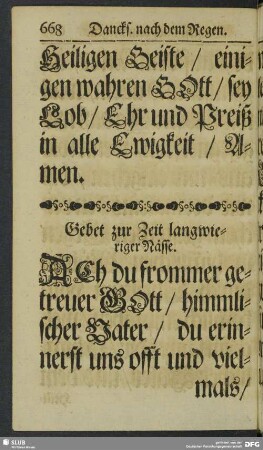 668 Dancks. nach dem Regen.
Heiligen Geiste / eini-
gen wahren GOtt / sey
Lob / Ehr und Preiß
in alle Ewigkeit / A-
men.
Gebet zur Zeit langwie-
riger Nässe.
ACh du frommer ge-
treuer GOtt / himmli-
scher Vater / du erin-
nerst uns offt und viel-
mals /
SLUB
DFG